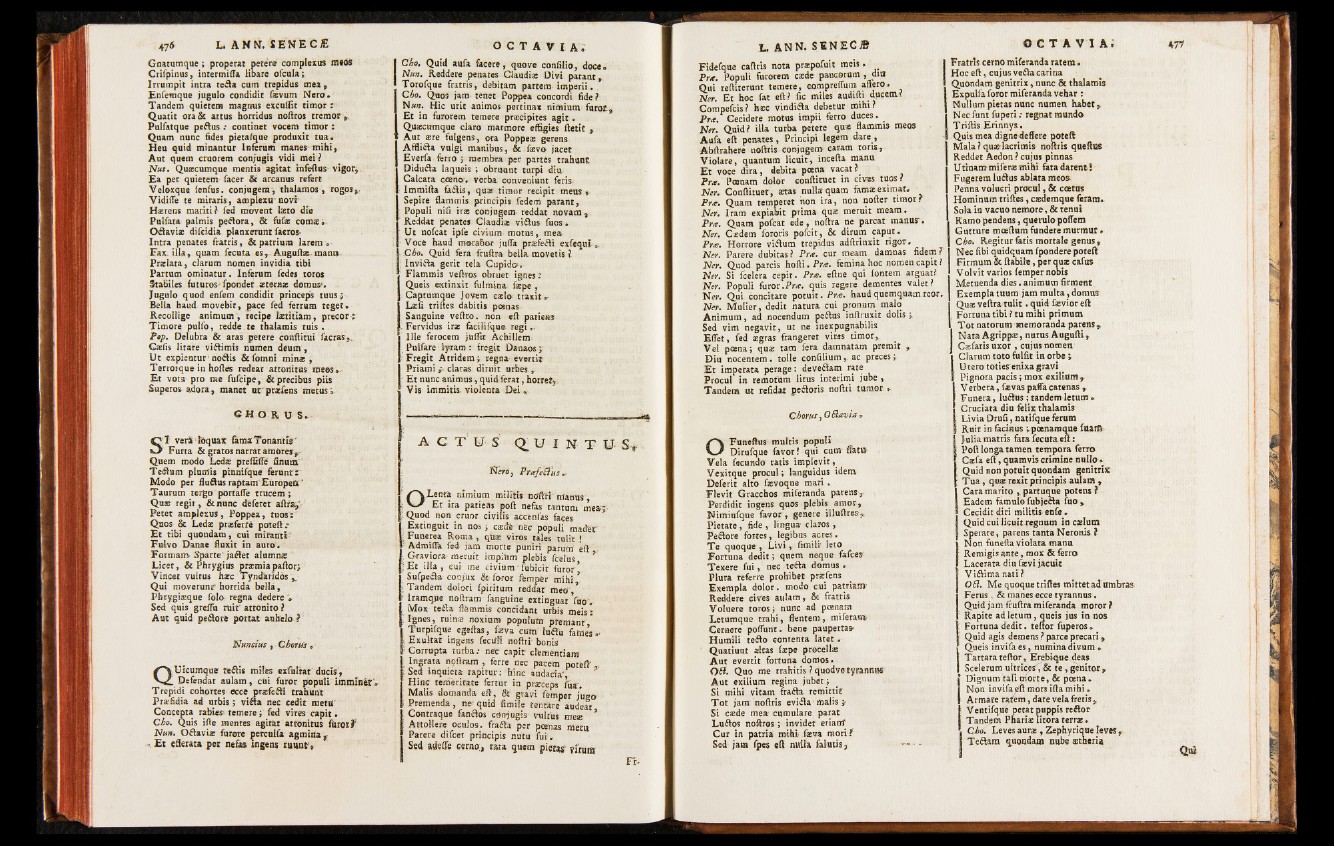 476 L. ANN. SENECÆ
Gnatumque; properat petere complexus meos
Crispinus, intermissa libare oscula;
Irrumpit intra tecta cum trepidus mea,
Ensemque jugulo condidit sævum Nero.
Tandem quietem magnus excussit timor:
Quatit ora & artus horridus nostros tremor,
Pulsatque pectus: continet vocem timor:
Quam nunc fides pietasque produxit tua.
Heu quid minantur Inferum manes mihi,
Aut quem cruorem conjugis vidi mei?
Nut. Quæcumque mentis agitat infestus vigor,
Ea per quietem sacer & arcanus refert
Veloxque sensus. conjugem, thalamos, rogos,
Vidisse te miraris, amplexu novi
Hærens mariti? sed movent læto die
Pulsata palmis pectora, & fusæ comæ.
Octaviæ discidia planxerunt sacros
Intra penates fratris, & patrium larem.
Fax illa, quam secuta es, Augustæ manu
Prælata, clarum nomen invidia tibi
Partum ominatur. Inferum sedes toros
Stabiles futuros spondet æternæ domus.
Jugulo quod ensem condidit princeps tuus;
Bella haud movebit, pace sed ferrum teget.
Recollige animum, recipe lætitiam, precor:
Timore pulso, redde te thalamis tuis.
Pop. Delubra & aras petere constitui sacras,
Cæsis litare victimis numen deum,
Ut expientur noctis & somni minæ,
Terrorque in hostes redeat attonitus meos.
Et vota pro me suscipe, & precibus piis
Superos adora, manet ut præsens metus.
CHORUS.
SI vera loquax fama Tonantis
Furta & gratos narrat amores,
Quem modo Ledæ pressisse sinum
Tectum plumis pinnisque ferunt:
Modo per fluctus raptam Europen
Taurum tergo portasse trucem;
Quæ regit, & nunc deseret astra,
Petet amplexus, Poppea, tuos:
Quos & Ledæ præferre potest:
Et tibi quondam, cui miranti
Fulvo Danae fluxit in auro.
Formam Sparte jactet alumnæ
Licet, & Phrygius præmia pastor;
Vincet vultus hæc Tyndaridos,
Qui moverunt horrida bella,
Phrygiæque solo regna dedere.
Sed quis gressu ruit attonito?
Aut quid pectore portat anhelo?
Nuncius, Chorus.
QUicumque tectis miles exsultat ducis,
Defendat aulam, cui furor populi imminet.
Trepidi cohortes ecce præfecti trahunt
Præsidia ad urbis; victa nec cedit metu
Concepta rabies temere; sed vires capit.
Cho. Quis iste mentes agitat attonitus furor?
Nun. Octaviæ furore perculsa agmina,
Et efferata per nefas ingens ruunt,
OCTAVIA.
Cho. Quid ausa facere, quove consilio, doce.
Nun. Reddere penates Claudiæ Divi parant,
Torosque fratris, debitam partem imperii.
Cho. Quos jam tenet Poppea concordi fide?
Nun. Hic urit animos pertinax nimium furor,
Et in furorem temere præcipites agit.
Quæcumque claro marmore effigies stetit,
Aut ære fulgens, ora Poppeæ gerens
Afflicta vulgi manibus, & sævo jacet
Eversa ferro; membra per partes trahunt
Diducta laqueis; obruunt turpi diu
Calcata cœno. verba conveniunt feris
Immista factis, quæ timor recipit meus,
Sepire flammis principis sedem parant,
Populi nisi iræ conjugem reddat novam,
Reddat penates Claudiæ victus suos.
Ut noscat ipse civium motus, mea
Voce haud morabor jussa præfecti exsequi.
Cho. Quid fera frustra bella movetis?
Invicta gerit tela Cupido.
Flammis vestros obruet ignes:
Queis extinxit fulmina sæpe,
Captumque Jovem cælo traxit.
Læsi tristes dabitis pœnas
Sanguine vestro. non est patiens
Fervidus iræ facilisque regi.
Ille ferocem jussit Achillem
Pulsare lyram: fregit Danaos;
Fregit Atridem; regna evertit
Priami; claras diruit urbes,
Et nunc animus, quid ferat, horret,
Vis immitis violenta Dei.
ACTUS QUINTUS.
Nero, Præfectus.
OLenta nimium militis nostri manus,
Et ira patiens post nefas tantum mea;
Quod non cruor civilis accensas faces
Extinguit in nos; cæde nec populi madet
Funerea Roma, quæ viros tales tulit!
Admissa sed jam morte puniri parum est,
Graviora meruit impium plebis scelus,
Et illa, cui me civium subicit furor,
Suspecta conjux & soror semper mihi,
Tandem dolori spiritum reddat meo,
Iramque nostram sanguine extinguat suo.
Mox tecta flammis concidant urbis meis:
Ignes, ruinæ noxium populum premant,
Turpisque egestas, sæva cum luctu fames.
Exultat ingens seculi nostri bonis
Corrupta turba: nec capit clementiam
Ingrata nostram, ferre nec pacem potest,
Sed inquieta rapitur: hinc audacia,
Hinc temeritate fertur in præceps sua.
Malis domanda est, & gravi semper jugo
Premenda, ne quid simile tentare audeat,
Contraque sanctos conjugis vultus meæ
Attollere oculos. fracta per pœnas metu
Parere discet principis nutu sui.
Sed adesse cerno, rara quem pietas virum
Fi-
L. ANN. SENECÆ
Fidesque castris nota præposuit meis.
Præ. Populi furorem cæde paucorum, diu
Qui restiterunt temere, compressum affero.
Ner. Et hoc sat est? sic miles audisti ducem?
Compescis? hæc vindicta debetur mihi?
Præ. Cecidere motus impii ferro duces.
Ner. Quid? illa turba petere quæ flammis meos
Ausa est penates, Principi legem dare,
Abstrahere nostris conjugem caram toris,
Violare, quantum licuit, incesta manu
Et voce dira, debita pœna vacat?
Præ. Pœnam dolor constituet in cives tuos?
Ner. Constituet, ætas nulla quam famæ eximat.
Præ. Quam temperet non ira, non noster timor?
Ner. Iram expiabit prima quæ meruit meam.
Præ. Quam poscat ede, nostra ne parcat manus.
Ner. Cædem sororis poscit, & dirum caput.
Præ. Horrore victum trepidus adstrinxit rigor.
Ner. Parere dubitas? Præ. cur meam damnas fidem?
Ner. Quod parcis hosti. Præ. femina hoc nomen capit?
Ner. Si scelera cepit. Præ. estne qui sontem arguat?
Ner. Populi furor. Præ. quis regere dementes valet?
Ner. Qui concitare potuit. Præ. haud quemquam reor.
Ner. Mulier, dedit natura cui pronum malo
Animum, ad nocendum pectus instruxit dolis;
Sed vim negavit, ut ne inexpugnabilis
Esset, sed ægras frangeret vires timor,
Vel pœna; quæ tam sera damnatam premit,
Diu nocentem. tolle consilium, ac preces;
Et imperata perage: devectam rate
Procul in remotum litus interimi jube,
Tandem ut residat pectoris nostri tumor.
Chorus, Octavia.
O Funestus multis populi
Dirusque favor! qui cum flatu
Vela secundo ratis implevit,
Vexitque procul; languidus idem
Deserit alto sævoque mari.
Flevit Gracchos miseranda parens,
Perdidit ingens quos plebis amor,
Nimiusque favor, genere illustres,
Pietate, fide, lingua claros,
Pectore fortes, legibus acres.
Te quoque, Livi, simili leto
Fortuna dedit; quem neque fasces
Texere sui, nec tecta domus.
Plura referre prohibet præsens
Exempla dolor. modo cui patriam
Reddere cives aulam, & fratris
Voluere toros; nunc ad pœnam
Letumque trahi, flentem, miseram
Cernere possunt. bene paupertas
Humili tecto contenta latet.
Quatiunt altas sæpe procellæ
Aut evertit fortuna domos.
Oct. Quo me trahitis? quodve tyrannus
Aut exilium regina jubet;
Si mihi vitam fracta remittit
Tot jam nostris evicta malis;
Si cæde mea cumulare parat
Luctus nostros; invidet etiam
Cur in patria mihi sæva mori?
Sed jam spes est nulla salutis,
OCTAVIA. 477
Fratris cerno miseranda ratem.
Hoc est, cujus vecta carina
Quondam genitrix, nunc & thalamis
Expulsa soror miseranda vehar:
Nullum pietas nunc numen habet,
Nec sunt superi: regnat mundo
Tristis Erinnys.
Quis mea digne deflere potest
Mala? quæ lacrimis nostris questus
Reddet Aedon? cujus pinnas
Utinam miseræ mihi fata darent!
Fugerem luctus ablata meos
Penna volucri procul, & cœtus
Hominum tristes, cædemque feram.
Sola in vacuo nemore, & tenui
Ramo pendens, querulo possem
Gutture mœstum fundere murmur.
Cho. Regitur fatis mortale genus,
Nec sibi quidquam spondere potest
Firmum & stabile, per quæ casus
Volvit varios semper nobis
Metuenda dies. animum firment
Exempla tuum jam multa, domus
Quæ vestra tulit. quid sævior est
Fortuna tibi? tu mihi primum
Tot natorum memoranda parens,
Nata Agrippæ, nurus Augusti,
Cæsaris uxor, cujus nomen
Clarum toto fulsit in orbe;
Utero toties enixa gravi
Pignora pacis; mox exilium,
Verbera, sævas passa catenas,
Funera, luctus; tandem letum.
Cruciata diu felix thalamis
Livia Drusi, natisque ferum
Ruit in facinus; pœnamque suam
Julia matris fata secuta est:
Post longa tamen tempora ferro
Cæsa est, quamvis crimine nullo.
Quid non potuit quondam genitrix
Tua, quæ rexit principis aulam,
Cara marito, partuque potens?
Eadem famulo subjecta suo,
Cecidit diri militis ense.
Quid cui licuit regnum in cælum
Sperare, parens tanta Neronis?
Non funesta violata manu
Remigis ante, mox & ferro
Lacerata diu sævi jacuit
Victima nati?
Oct. Me quoque tristes mittet ad umbras
Ferus. & manes ecce tyrannus.
Quid jam frustra miseranda moror?
Rapite ad letum, queis jus in nos
Fortuna dedit. testor superos.
Quid agis demens? parce precari,
Queis invisa es, numina divum.
Tartara testor, Erebique deas
Scelerum ultrices, & te, genitor,
Dignum tali morte, & pœna.
Non invisa est mors ista mihi.
Armate ratem, date vela fretis,
Ventisque petat puppis rector
Tandem Phariæ litora terræ.
Cho. Leves auræ, Zephyrique leves,
Tectam quondam nube ætheria
Qui